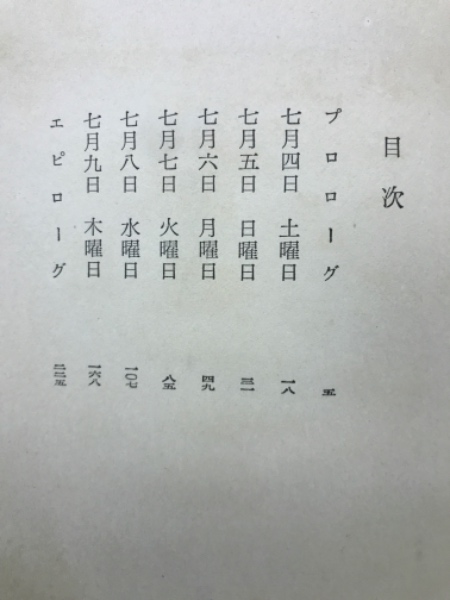 目次
プロローグ 五
七月四日 土曜日 一八
七月五日 日曜日 三一
七月六日 月曜日 四九
七月七日 火曜日 八五
七月八日 水曜日 一〇七
七月九日 木曜日 一六八
エピローグ 二二五